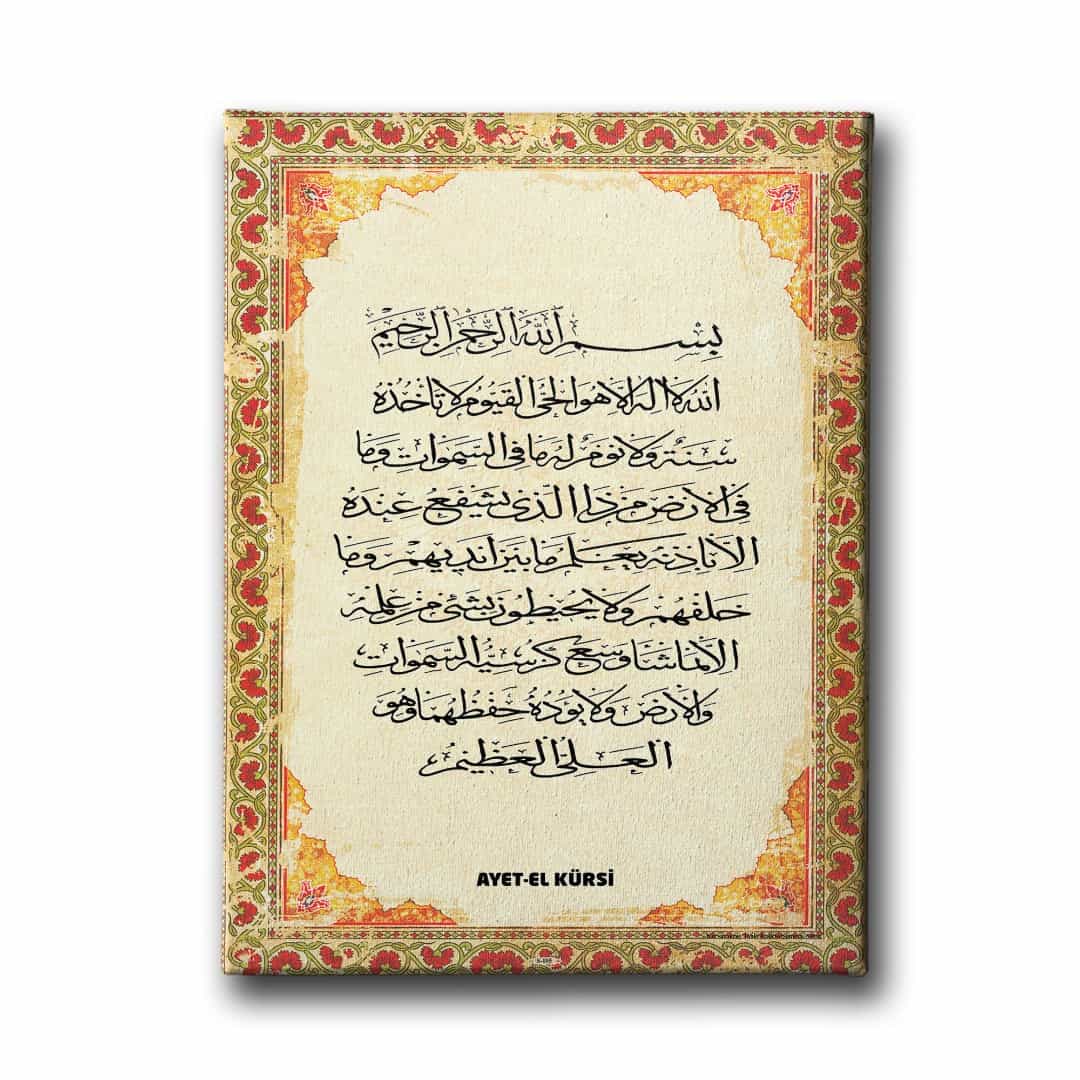 بسم الله الرحمن الرحيم
الله لا اله الا هو الحى القيوم لا تاخذه
سنة ولا نوم له ما فى السموات وما
فى الارض من ذا الذى يشفع عنده
الا باذنه يعلم ما بين ايديهم وما
خلفهم ولا يحيطون بشئ من علمه
الا بما شاء وسع كرسيه السموات
والارض ولا يؤده حفظهما وهو
العلى العظيم
AYET-EL KÜRSİ